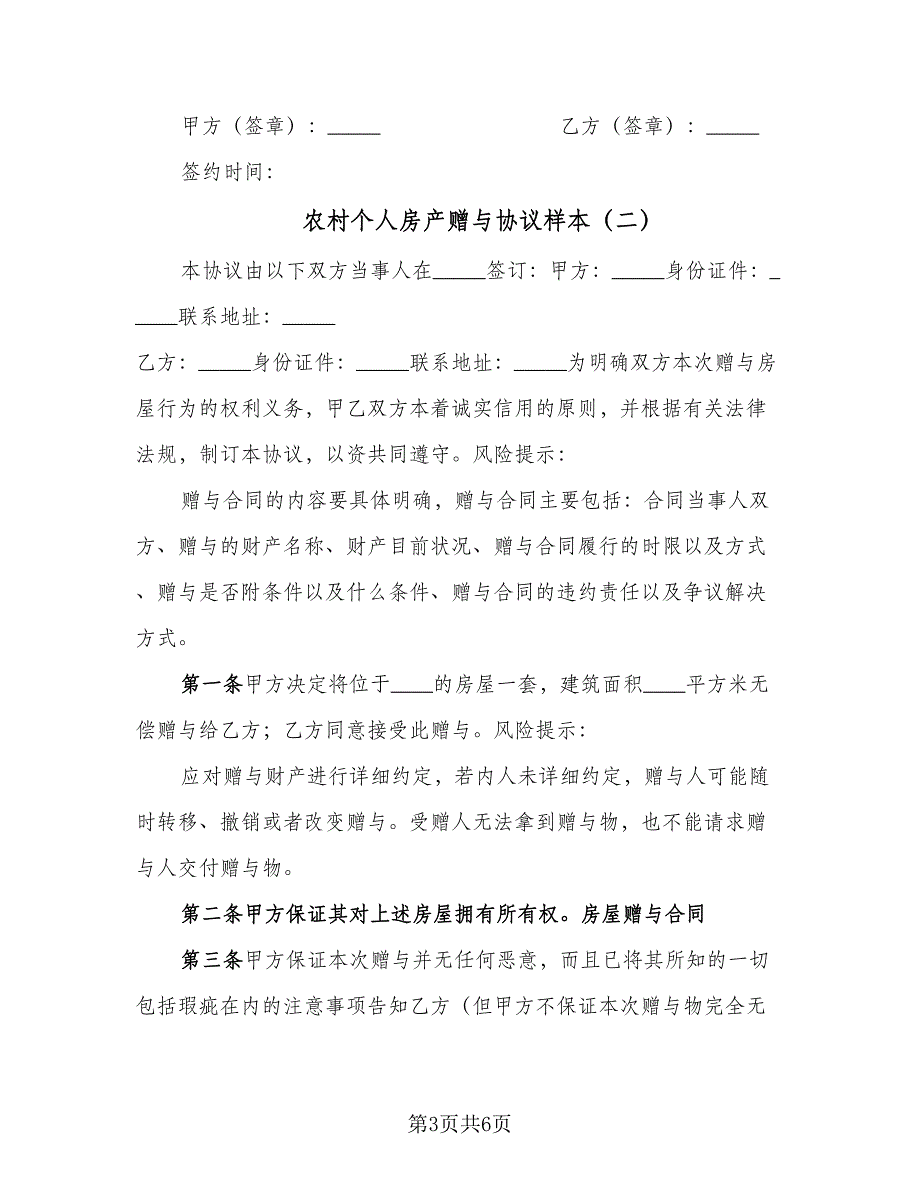 甲方（签章）：_____ 乙方（签章）：_____
签约时间：
农村个人房产赠与协议样本（二）
本协议由以下双方当事人在_____签订：甲方：_____身份证件：_
____联系地址：_____
乙方：_____身份证件：_____联系地址：_____为明确双方本次赠与房
屋行为的权利义务，甲乙双方本着诚实信用的原则，并根据有关法律
法规，制订本协议，以资共同遵守。风险提示：
赠与合同的内容要具体明确，赠与合同主要包括：合同当事人双
方、赠与的财产名称、财产目前状况、赠与合同履行的时限以及方式
、赠与是否附条件以及什么条件、赠与合同的违约责任以及争议解决
方式。
第一条甲方决定将位于____的房屋一套，建筑面积____平方米无
偿赠与给乙方；乙方同意接受此赠与。风险提示：
应对赠与财产进行详细约定，若内人未详细约定，赠与人可能随
时转移、撤销或者改变赠与。受赠人无法拿到赠与物，也不能请求赠
与人交付赠与物。
第二条甲方保证其对上述房屋拥有所有权。房屋赠与合同
第三条甲方保证本次赠与并无任何恶意，而且已将其所知的一切
包括瑕疵在内的注意事项告知乙方（但甲方不保证本次赠与物完全无
第3页共6页